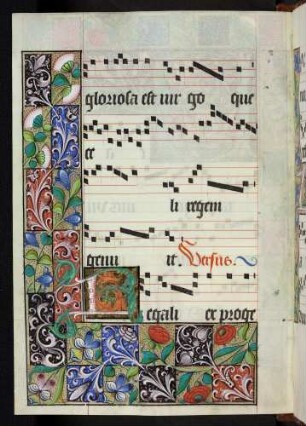 gloriosa est uir go que
ce
li regem
genu it. Versus.
R egali ex proge